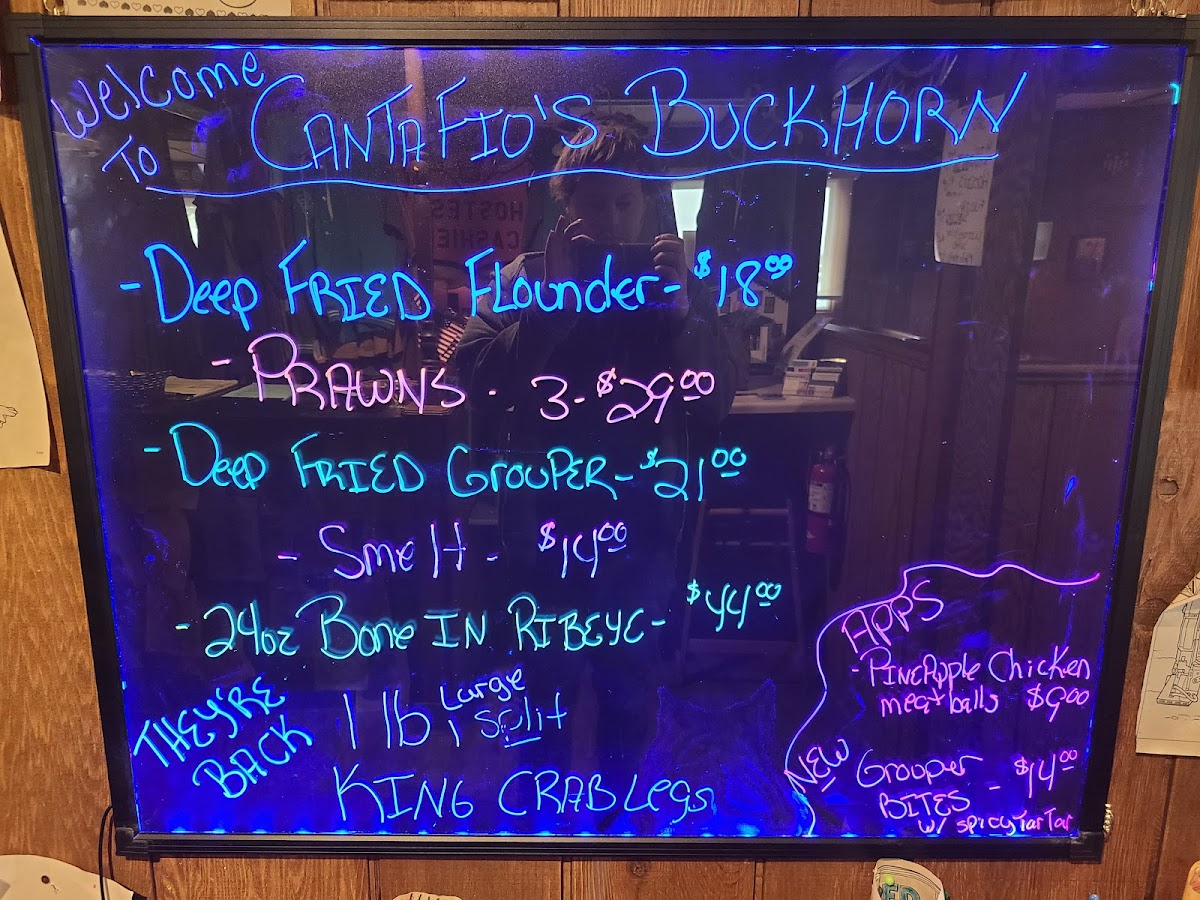 Welcome
To CANTAFIO'S BUCKHORN
- Deep FRIED Flounder - $18.00
- PRAWNS - 3 - $29.00
- Deep FRIED GROUPER - $21.00
- Smelt - $14.00
- 24oz Bone IN RIBEYE - $44.00
THEY'RE
BACK
1 lb, Large
Split
KING CRAB Legs
APPS
- PINEAPPle Chicken
meatballs $9.00
NEW Grouper - $14.00
BITES
w/ spicy TarTar
HOSTES
CASHIE